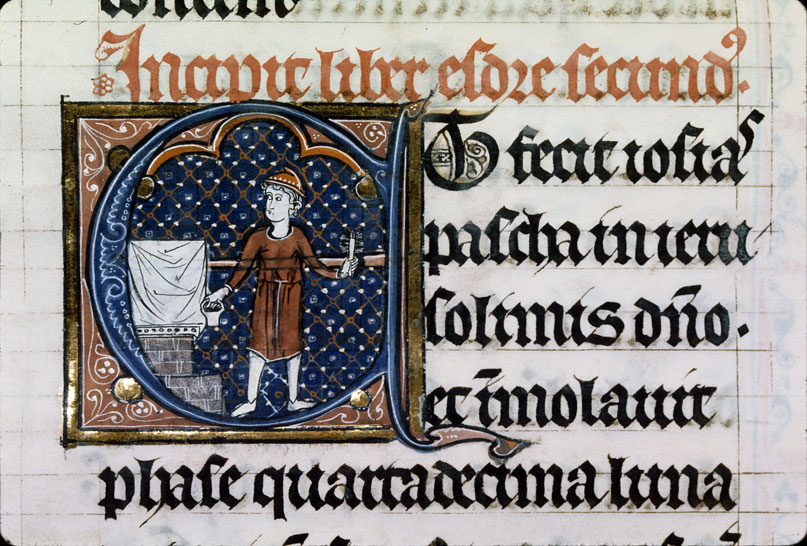 Incipit liber esdre secundꝰ.
ET fecit iosias
pascha in ieru
solimis dn̄o.
et īmolauit
phase quartadecima luna